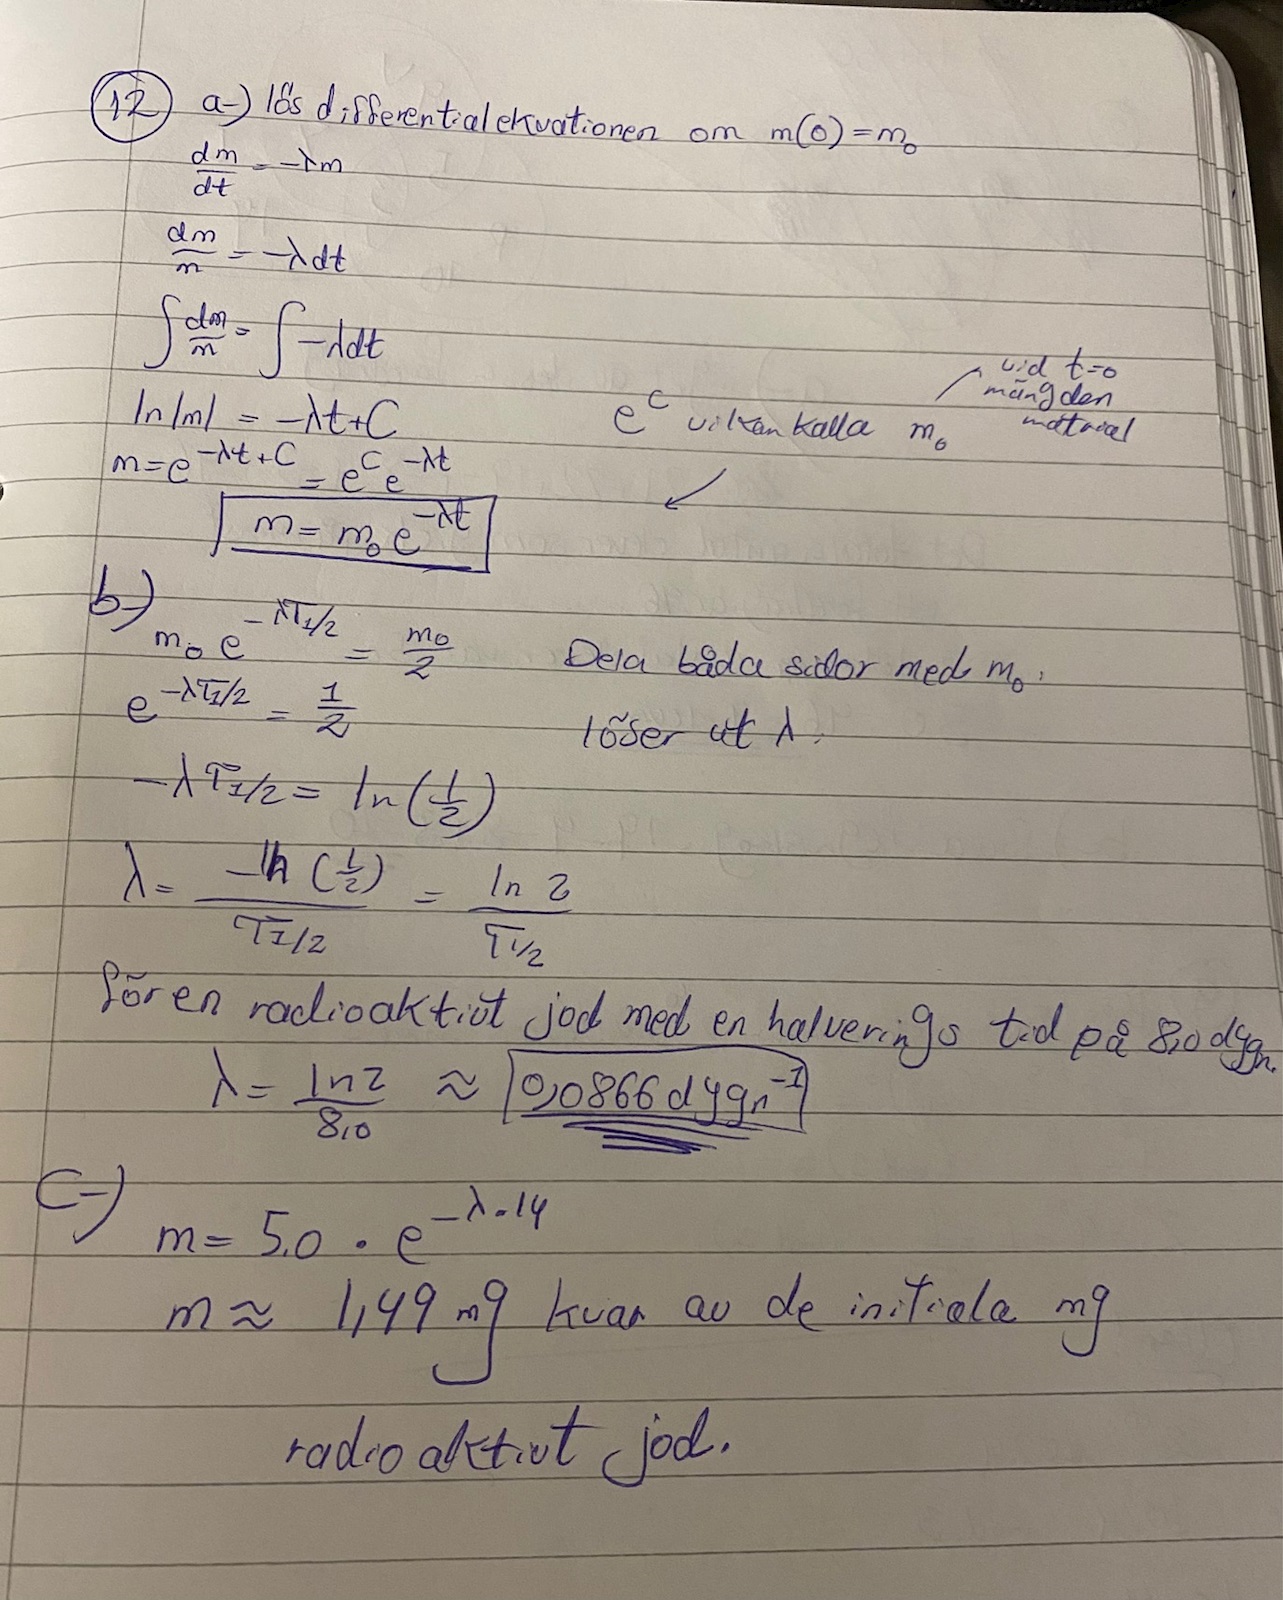 12 a-) lös differentialekvationen om m(0) = m₀
dm/dt = -λm
dm/m = -λdt
∫ dm/m = ∫ -λdt
ln|m| = -λt+C
e^C vi kan kalla m₀
vid t=0
mängden
m = e^(-λt+C) = e^C e^(-λt)
m = m₀ e^(-λt)
b-)
m₀ e^(-λT1/2) = m₀/2 Dela båda sidor med m₀.
e^(-λT1/2) = 1/2 löser ut λ.
-λT1/2 = ln(1/2)
λ = -ln(1/2)/T1/2 = ln 2/T1/2
för en radioaktivt jod med en halverings tid på 8,0 dygn.
λ = ln2/8,0 ≈ 0,0866 dygn⁻¹
C-)
m = 5,0 · e^(-λ·14)
m ≈ 1,49 mg kvar av de initiala mg
radioaktivt jod.